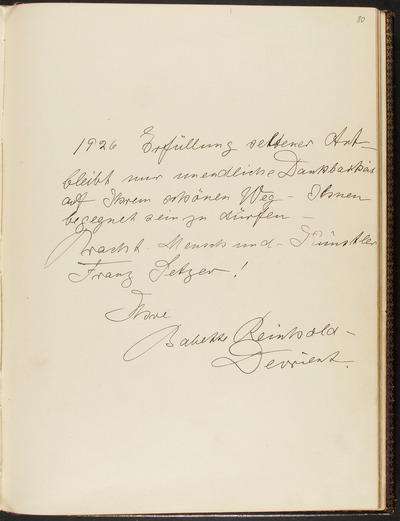 80
1926 Erfüllung seltener Art –
bleibt nur unendliche Dankbarkeit
auf Ihrem schönen Weg – Ihnen
begegnet sein zu dürfen –
Pracht-Mensch und – Künstler
Franz Setzer!
Ihre
Babette Reinhold –
Devrient.